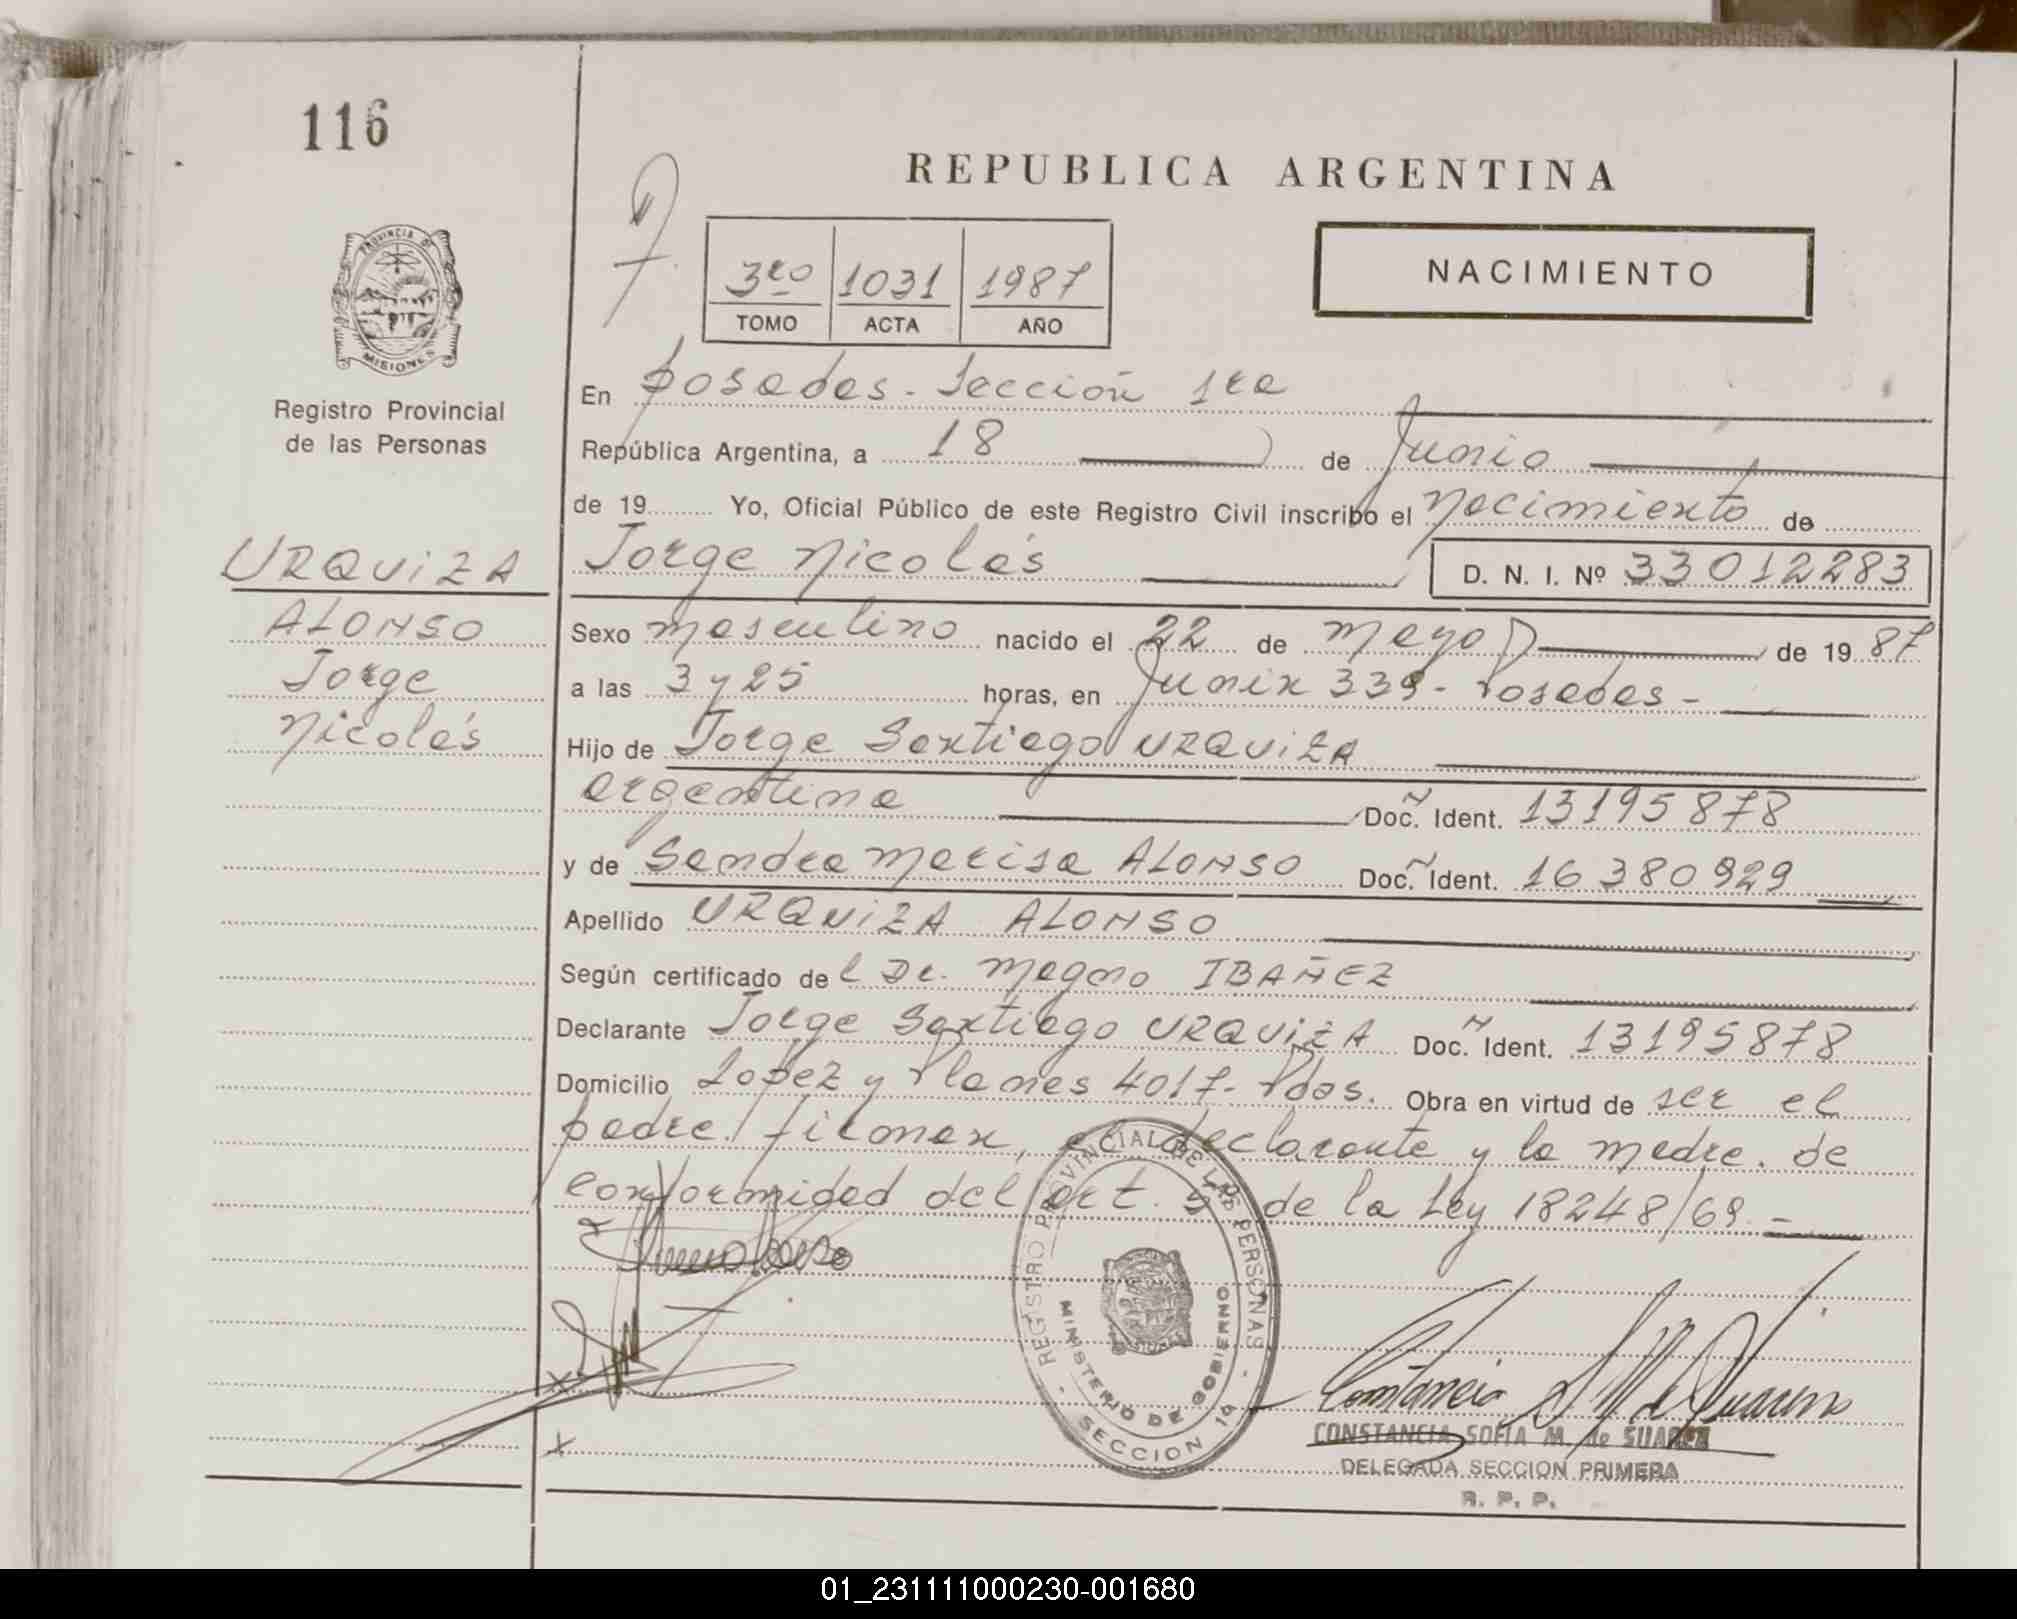 116
REPUBLICA ARGENTINA
PROVINCIA DE
MISIONES
Registro Provincial
de las Personas
3ro 1031 1987
TOMO ACTA AÑO
NACIMIENTO
En Posadas - Sección 1ra
República Argentina, a 18 de Junio
de 19 Yo, Oficial Público de este Registro Civil inscribo el Nacimiento de
URQUIZA
ALONSO
Jorge
Nicolás
Jorge Nicolás D. N. I. Nº 33012283
Sexo masculino nacido el 22 de mayo de 1987
a las 3 y 25 horas, en Junin 339 - Posadas -
Hijo de Jorge Santiago URQUIZA
argentina Doc. Ident. 13195878
y de Sandra Marisa ALONSO Doc. Ident. 16380929
Apellido URQUIZA ALONSO
Según certificado del Dr. Magno IBAÑEZ
Declarante Jorge Santiago URQUIZA Doc. Ident. 13195878
Domicilio Lopez y Planes 4017 - Pdas. Obra en virtud de ser el
padre. firman, el declarante y la madre. de
conformidad del art. 5º de la Ley 18248/69. -
REGISTRO PROVINCIAL DE LAS PERSONAS
MINISTERIO DE GOBIERNO
SECCION 1ª
CONSTANCIA SOFIA M. de SUAREZ
DELEGADA SECCION PRIMERA
R. P. P.
01_231111000230-001680